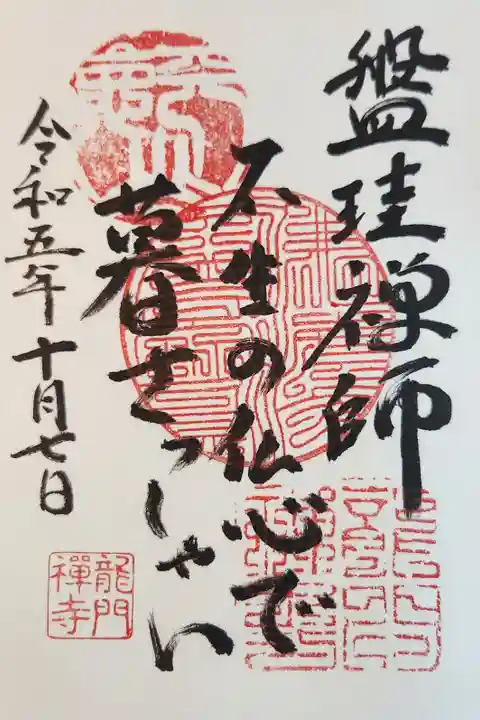 盤珪禅師
不生の仏心で
暮せっしゃい
令和五年十月七日
龍門
禪寺